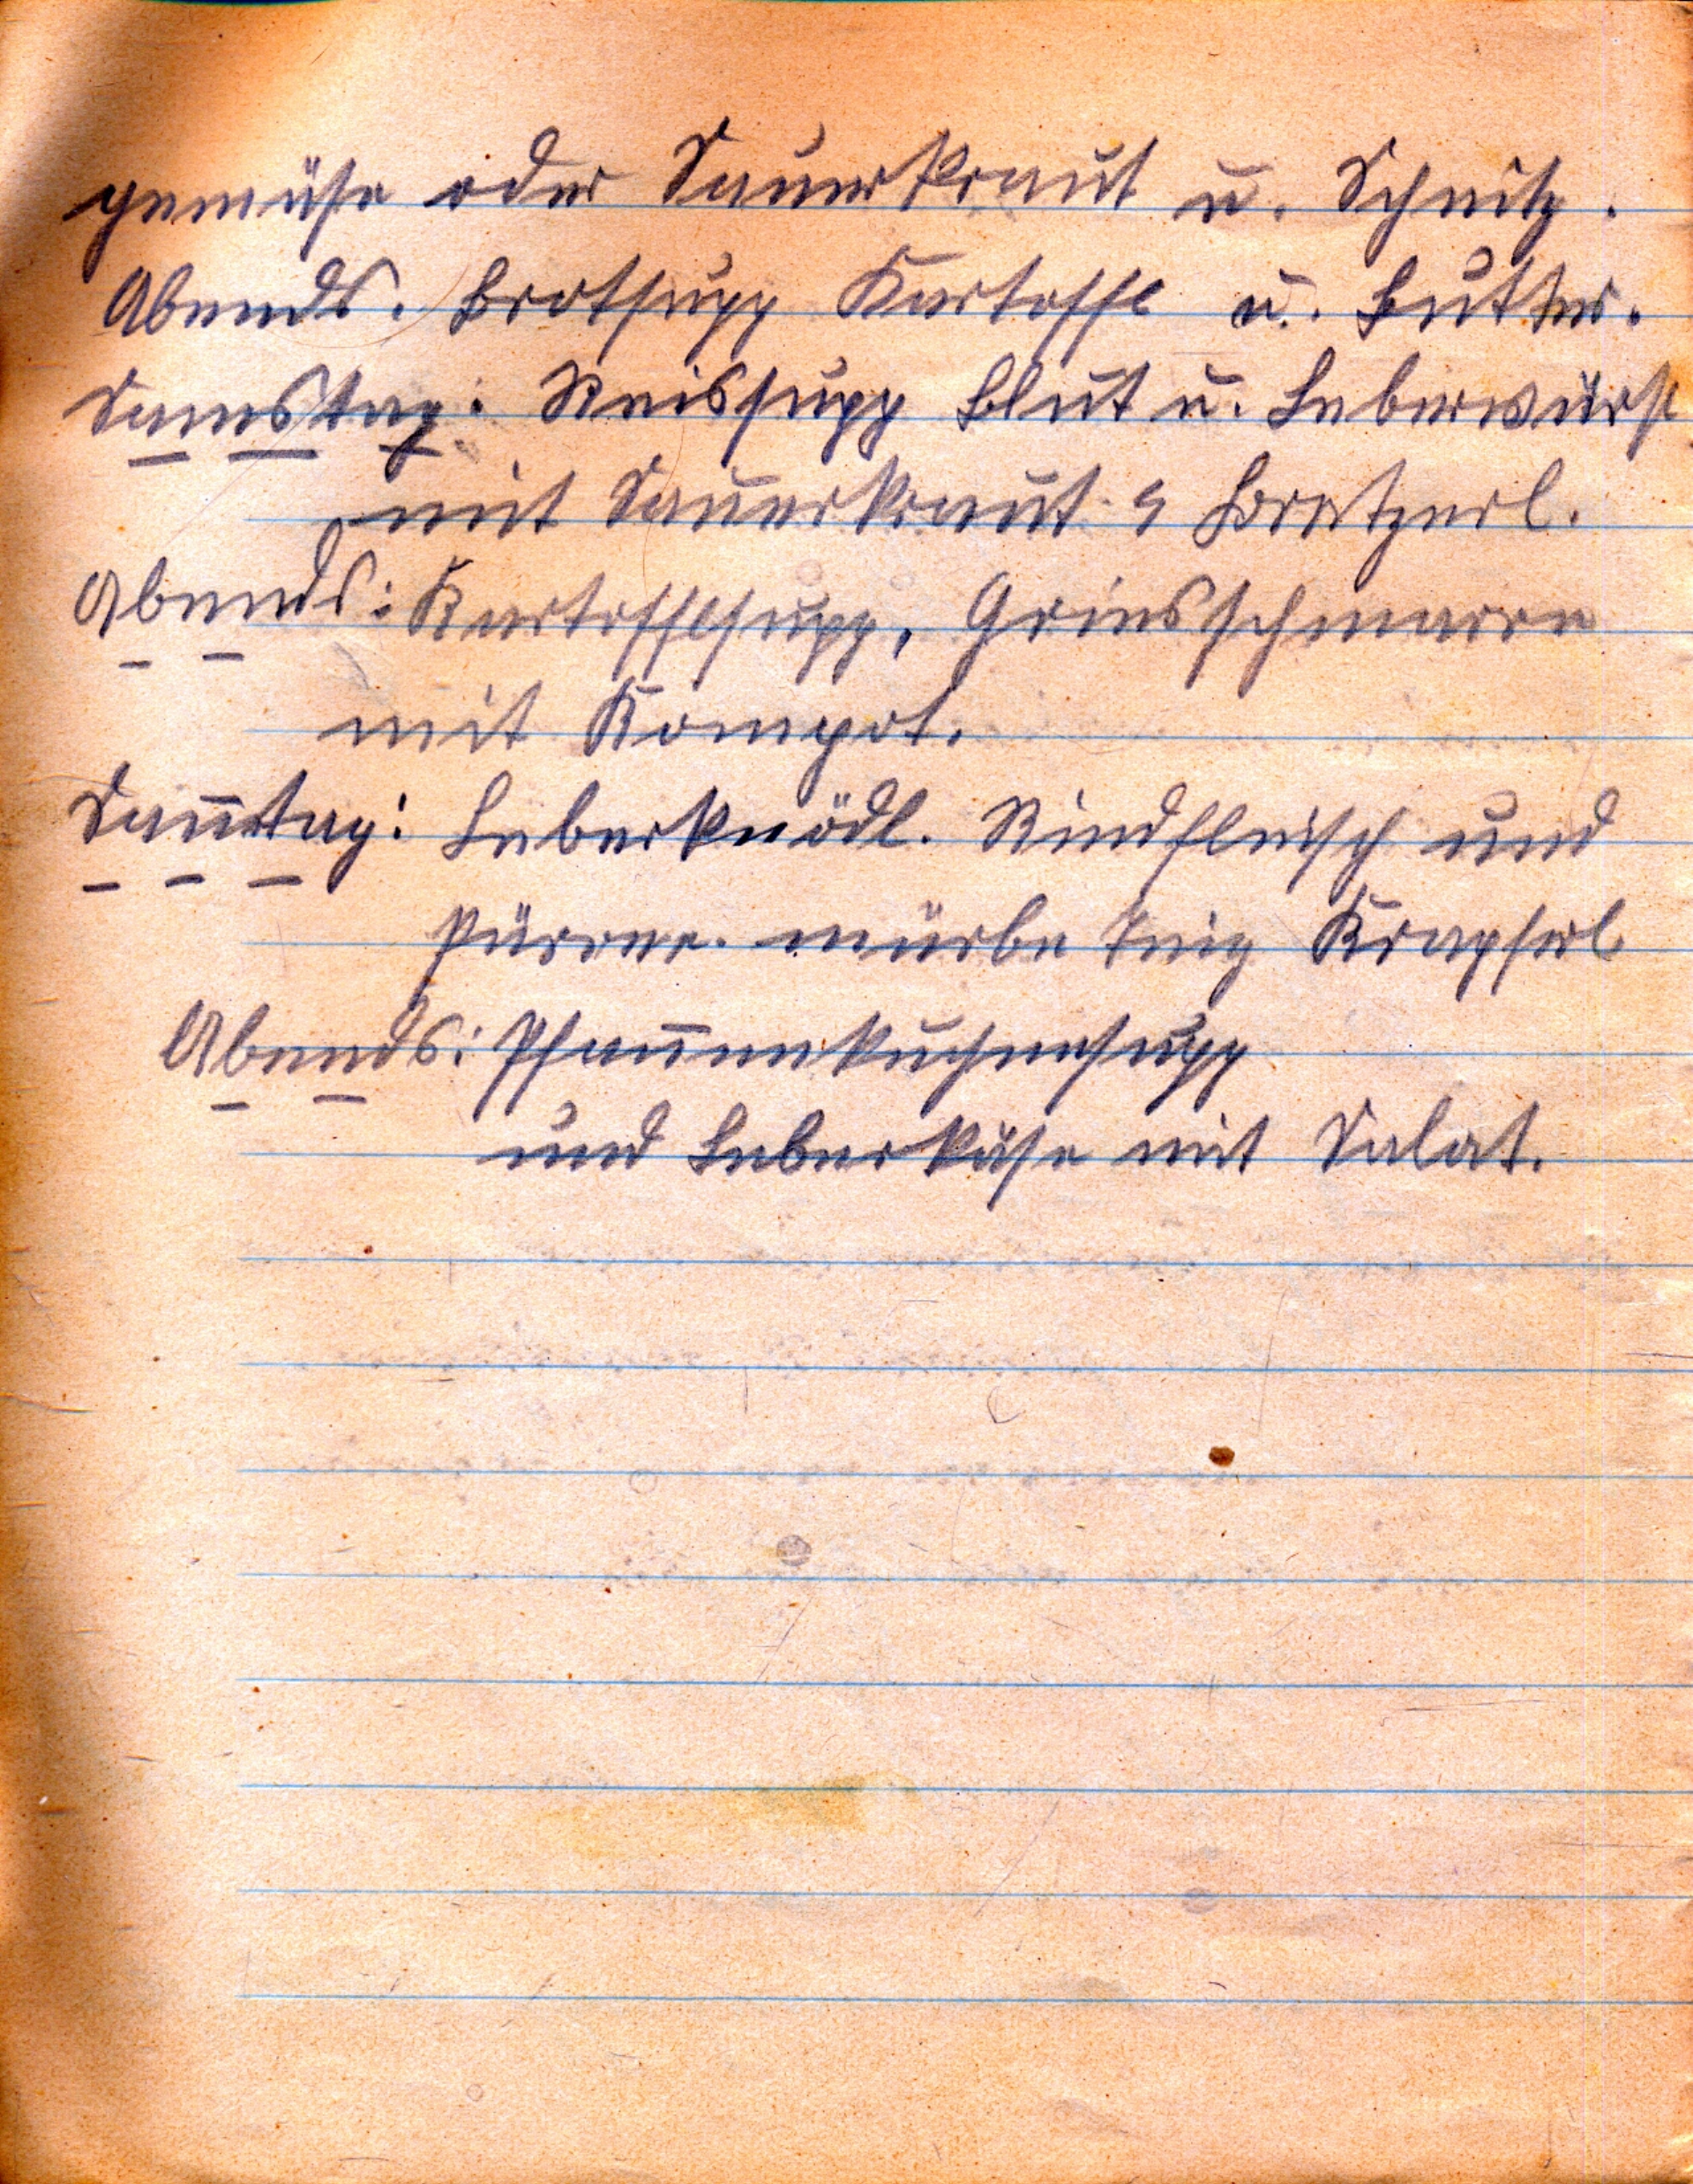 gemüse oder Sauerkraut u. Schnitz.
Abends. Brotsupp Kartoffl u. Butter.
Samstag: Reissupp Blut u. Leberwürst
mit Sauerkraut Bratzerl.
Abends: Kartofflsupp, Griesschmarrn
mit Kompot.
Sanntag: Leberknödl. Rindfleisch und
Pürree. mürbe Teig Krapferl
Abends: Pfannenkuchensupp
und Leberkäse mit Salat.